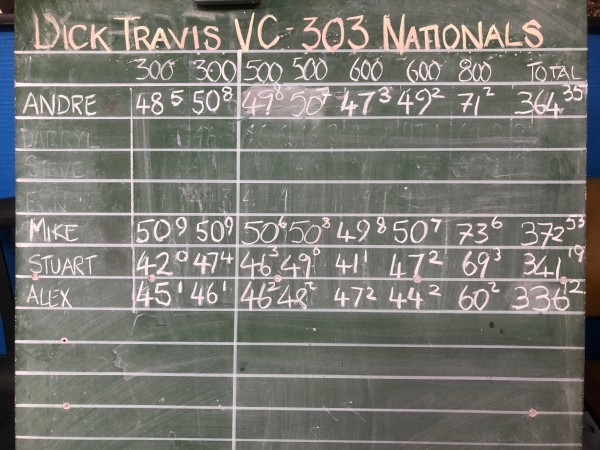 DICK TRAVIS VC-303 NATIONALS
300 300 500 500 600 600 800 TOTAL
ANDRE 48⁵ 50⁸ 49⁸ 50⁷ 47³ 49² 71² 364³⁵
DARRYL
STEVE
MIKE 50⁹ 50⁹ 50⁶ 50⁸ 49⁸ 50⁷ 73⁶ 372⁵³
STUART 42⁰ 47⁴ 46³ 49⁶ 41¹ 47² 69³ 341¹⁹
ALEX 45¹ 46¹ 46² 48² 47² 44² 60² 336¹²